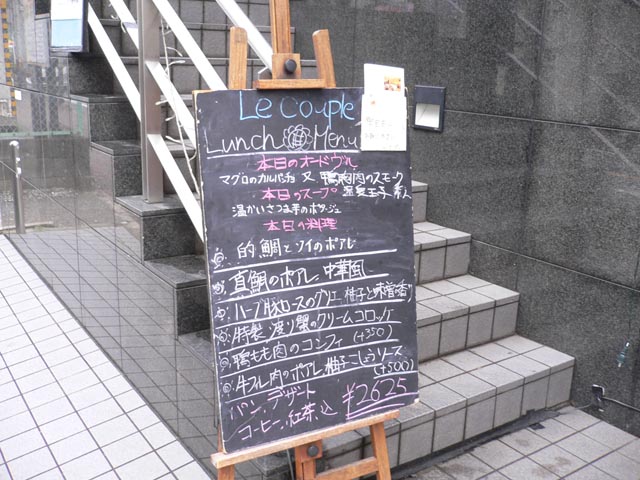 Le Couple
Lunch Menu
本日のオードヴル
マグロのカルパッチョ 又 鴨胸肉のスモーク
本日のスープ 温泉玉子 添え
温かいさつま芋のポタージュ
本日の料理
的鯛とソイのポアレ
真鯛のポアレ 中華風
ハーブ豚ロースのグリエ 柚子と味噌の香り
特製 渡り蟹のクリームコロッケ
鴨もも肉のコンフィ (+350)
牛フィレ肉のポアレ 柚子こしょうソース
(+500)
パン、デザート
コーヒー、紅茶、込
¥2625